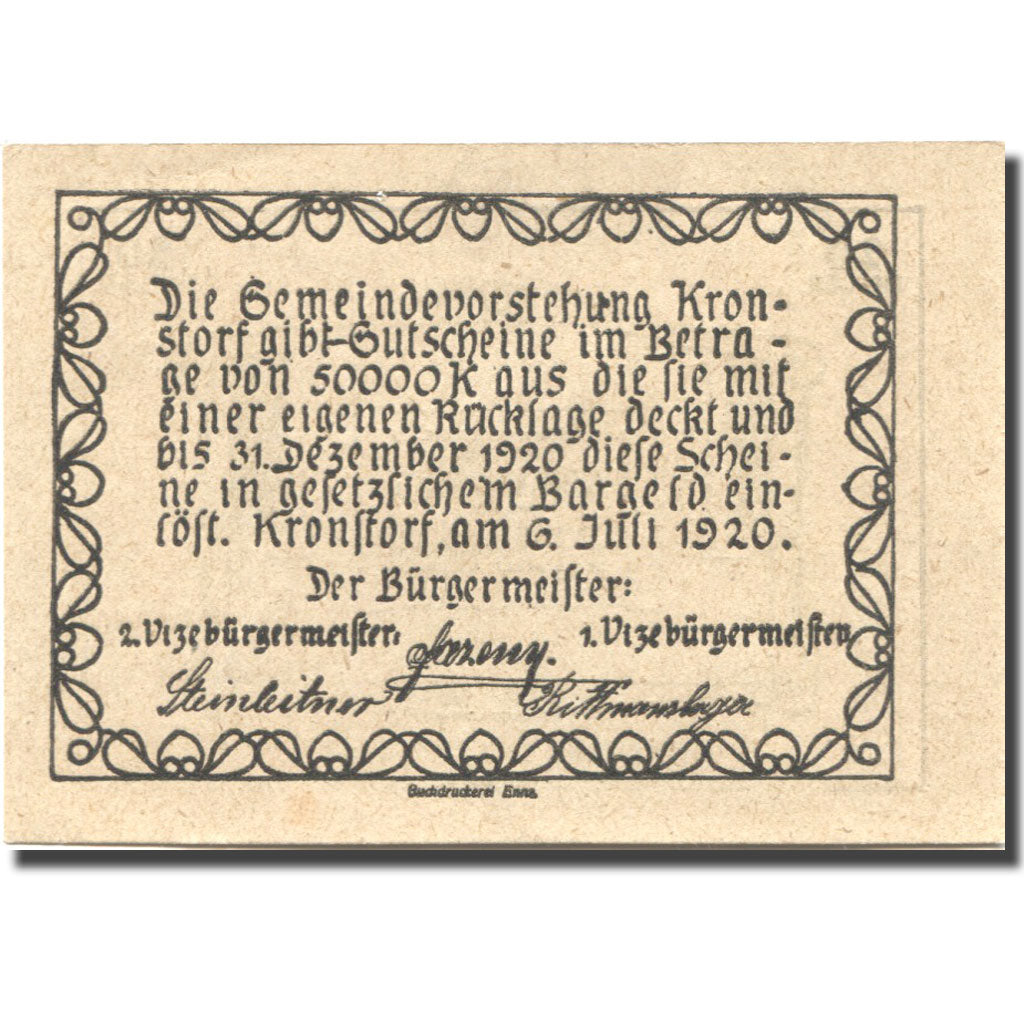 Die Gemeindevorstehung Kron-
storf gibt Gutscheine im Betra-
ge von 50000 K aus die ſie mit
einer eigenen Rücklage deckt und
bis 31. Dezember 1920 dieſe Schei-
ne in geſetzlichem Bargeld ein-
löſt. Kronſtorf, am 6. Juli 1920.
Der Bürgermeiſter:
2. Vizebürgermeiſter: 1. Vizebürgermeiſter
Steinleitner
Buchdruckerei Enns.